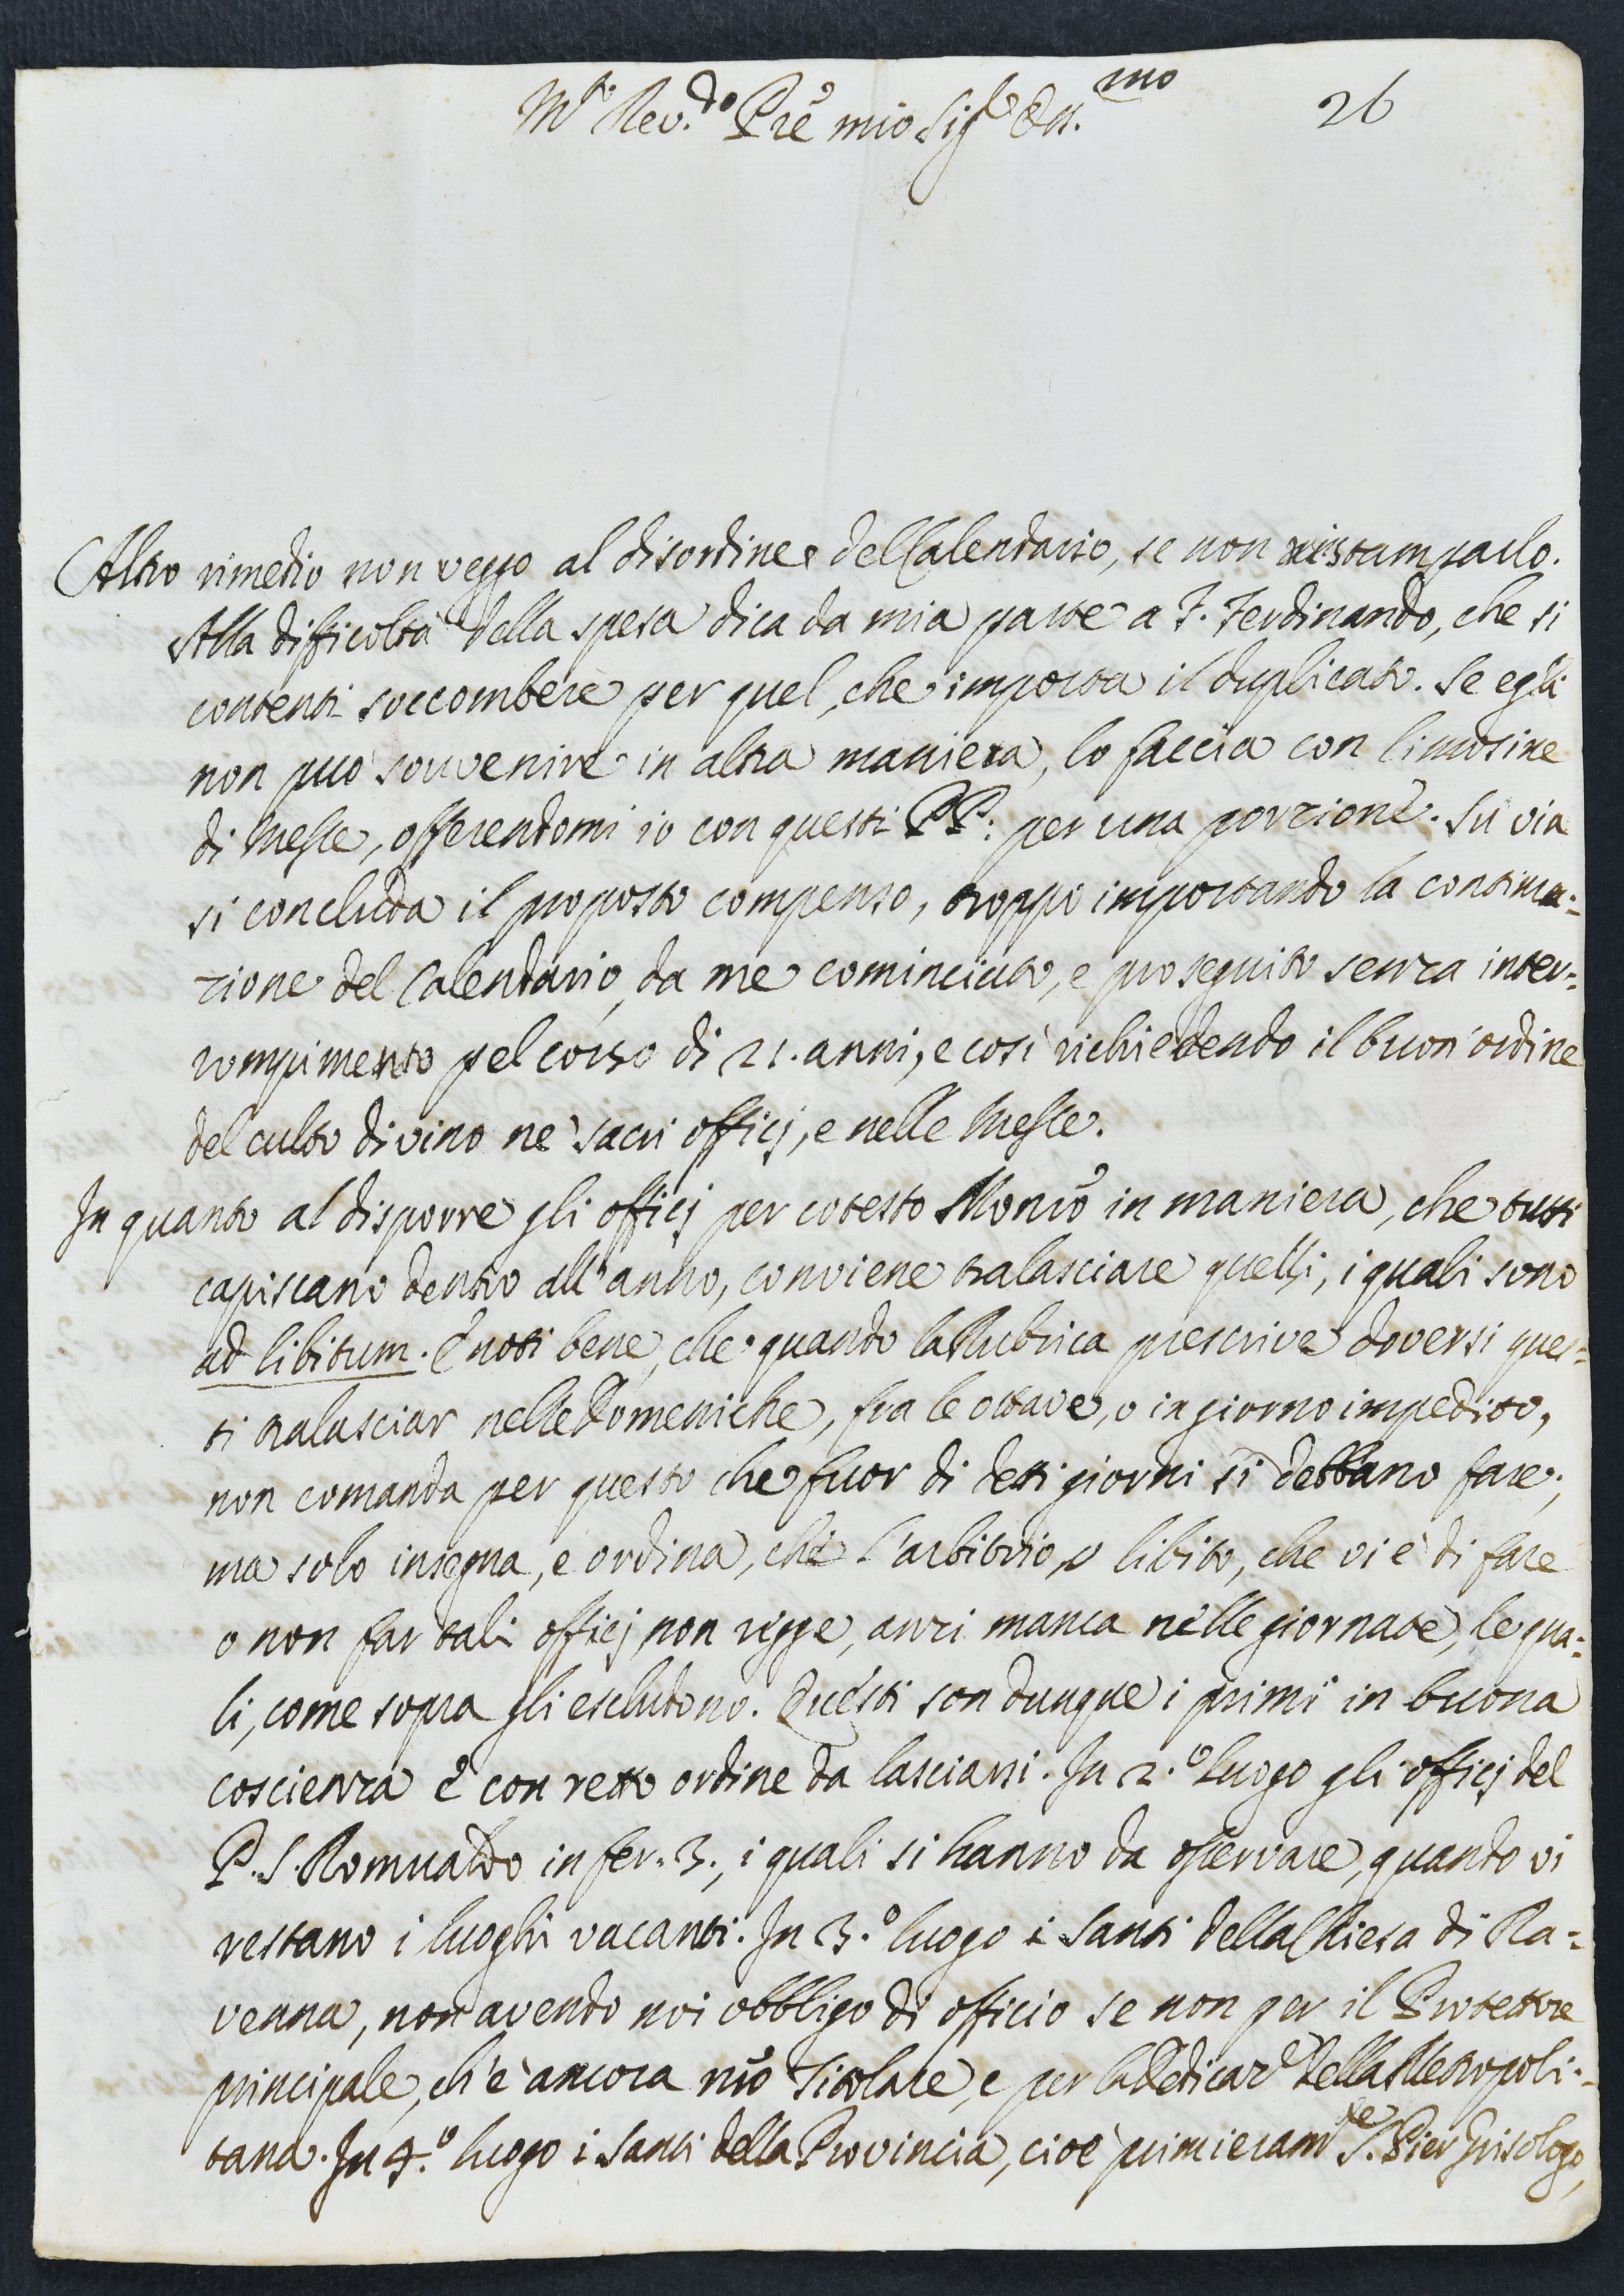 M.to Rev.do Pre mio Sig.e Oss.mo 26
Altro rimedio non veggo al disordine del Calendario, se non ristamparlo.
Alla difficoltà della spesa dica da mia parte a F. Ferdinando, che si
contenti soccombere per quel, che importa il duplicato. Se egli
non può sovvenire in altra maniera, lo faccia con limosine
di Messe, offerendomi io con questi PP: per una porzione. Su via
si concluda il proposto compenso, troppo importando la continua:
zione del Calendario, da me cominciato, e proseguito senza inter:
rompimento pel corso di 21. anni, e così richiedendo il buon ordine
del culto divino ne' sacri officj, e nelle Messe.
In quanto al disporre gli officj per cotesto Monrō in maniera, che tutti
capiscano dentro all'anno, conviene tralasciare quelli, i quali sono
ad libitum. E noti bene, che quando la Rubrica prescrive doversi ques:
ti tralasciar nelle Domeniche, fra le ottave, o in giorno impedito,
non comanda per questo che fuor di detti giorni si debbano fare;
ma solo insegna, e ordina, che l'arbitrio, o libito, che vi è di fare
o non far tali officj non regge, anzi manca nelle giornate, le qua:
li, come sopra gli escludono. Questi son dunque i primi in buona
coscienza e con retto ordine da lasciarsi. In 2.o luogo gli officj del
P. S. Romualdo in fer. 3., i quali si hanno da osservare, quando vi
restano i luoghi vacanti. In 3.o luogo i Santi della Chiesa di Ra:
venna, non avendo noi obbligo di officio se non per il Protettore
principale, ch'è ancora nrō Titolare, e per la Dedicaz.e della Metropoli:
tana. In 4.o luogo i Santi della Provincia, cioè primieram.te S. Pier Grisologo,